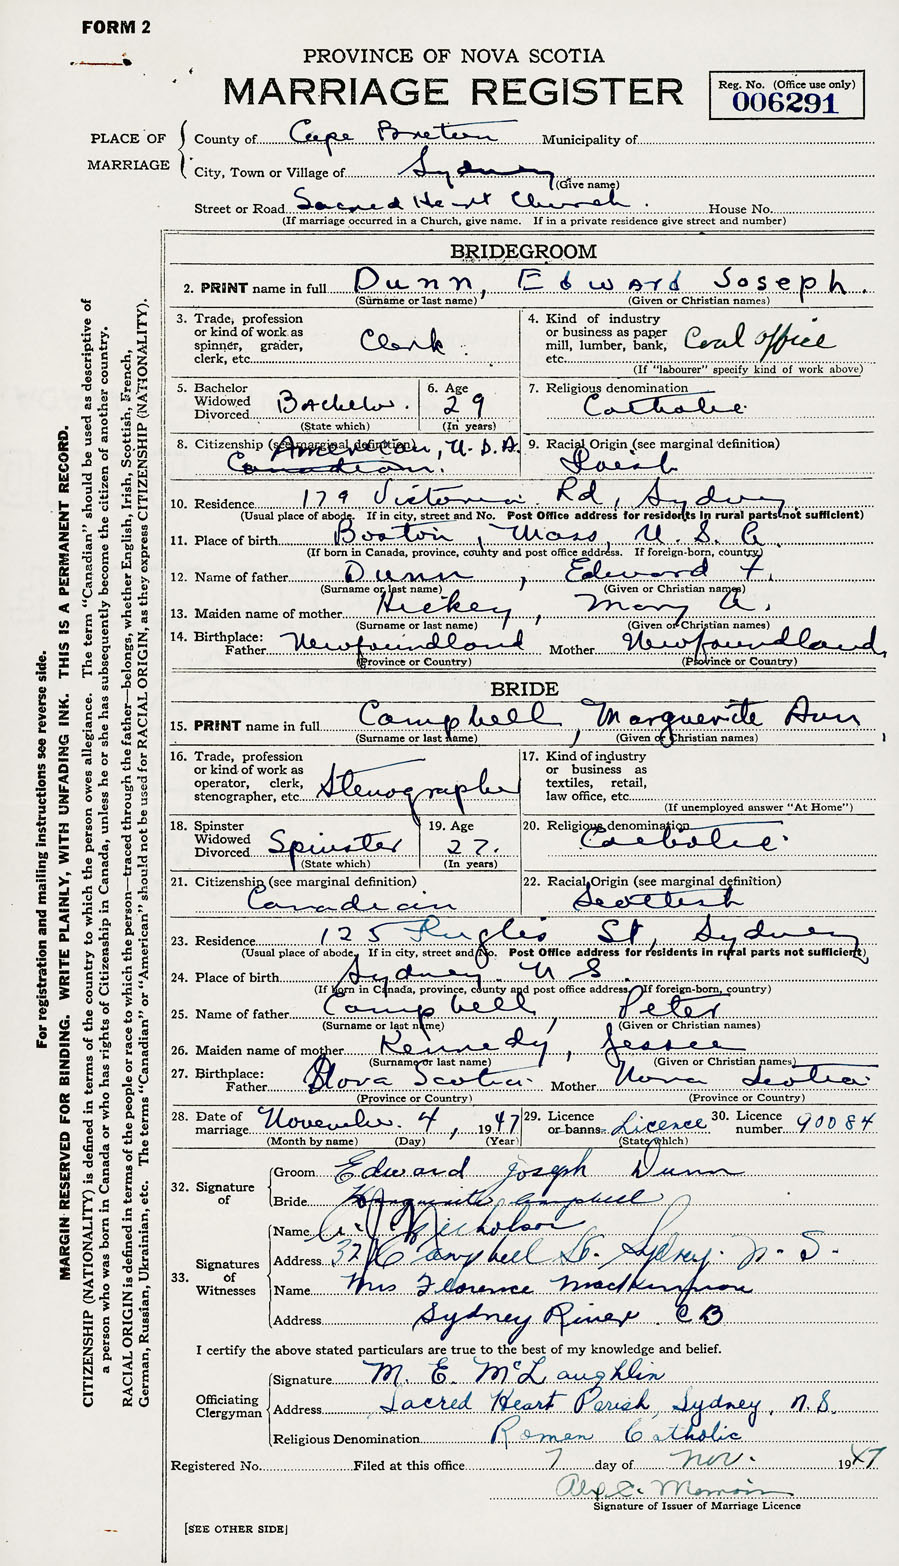 FORM 2
PROVINCE OF NOVA SCOTIA
MARRIAGE REGISTER
Reg. No. (Office use only)
006291
PLACE OF MARRIAGE
County of Cape Breton Municipality of
City, Town or Village of Sydney
(Give name)
Street or Road Sacred Heart Church. House No.
(If marriage occurred in a Church, give name. If in a private residence give street and number)
BRIDEGROOM
2. PRINT name in full Dunn, Edward Joseph.
(Surname or last name) (Given or Christian names)
3. Trade, profession or kind of work as spinner, grader, clerk, etc. Clerk.
4. Kind of industry or business as paper mill, lumber, bank, etc. Coal office
(If "labourer" specify kind of work above)
5. Bachelor Widowed Divorced Bachelor.
(State which)
6. Age 29
(In years)
7. Religious denomination Catholic.
8. Citizenship (see marginal definition) American, U.S.A.
Canadian.
9. Racial Origin (see marginal definition) Irish
10. Residence 179 Victoria Rd, Sydney
(Usual place of abode. If in city, street and No. Post Office address for residents in rural parts not sufficient)
11. Place of birth Boston, Mass, U.S.A.
(If born in Canada, province, county and post office address. If foreign-born, country)
12. Name of father Dunn, Edward F.
(Surname or last name) (Given or Christian names)
13. Maiden name of mother Hickey, Mary A.
(Surname or last name) (Given or Christian names)
14. Birthplace: Father Newfoundland Mother Newfoundland
(Province or Country) (Province or Country)
BRIDE
15. PRINT name in full Campbell, Marguerite Ann
(Surname or last name) (Given or Christian names)
16. Trade, profession or kind of work as operator, clerk, stenographer, etc. Stenographer
17. Kind of industry or business as textiles, retail, law office, etc.
(If unemployed answer "At Home")
18. Spinster Widowed Divorced Spinster
(State which)
19. Age 27.
(In years)
20. Religious denomination Catholic.
21. Citizenship (see marginal definition) Canadian
22. Racial Origin (see marginal definition) Scottish
23. Residence 125 Inglis St, Sydney
(Usual place of abode. If in city, street and No. Post Office address for residents in rural parts not sufficient)
24. Place of birth Sydney. N.S.
(If born in Canada, province, county and post office address. If foreign-born, country)
25. Name of father Campbell, Peter
(Surname or last name) (Given or Christian names)
26. Maiden name of mother Kennedy, Jessie
(Surname or last name) (Given or Christian names)
27. Birthplace: Father Nova Scotia. Mother Nova Scotia.
(Province or Country) (Province or Country)
28. Date of marriage November. 4, 1947
(Month by name) (Day) (Year)
29. Licence or banns Licence
(State which)
30. Licence number 90084
32. Signature of
Groom Edward Joseph Dunn
Bride Marguerite Campbell
33. Signatures of Witnesses
Name Nicholson
Address Campbell St. Sydney. N.S.
Name Mrs Florence MacKinnon
Address Sydney River. C B
I certify the above stated particulars are true to the best of my knowledge and belief.
Officiating Clergyman
Signature M. E. McLaughlin
Address Sacred Heart Parish, Sydney, N.S.
Religious Denomination Roman Catholic
Registered No. Filed at this office 7 day of Nov. 1947
Signature of Issuer of Marriage Licence
[SEE OTHER SIDE]
For registration and mailing instructions see reverse side.
MARGIN RESERVED FOR BINDING. WRITE PLAINLY, WITH UNFADING INK. THIS IS A PERMANENT RECORD.
CITIZENSHIP (NATIONALITY) is defined in terms of the country to which the person owes allegiance. The term "Canadian" should be used as descriptive of
a person who was born in Canada or who has rights of Citizenship in Canada, unless he or she has subsequently become the citizen of another country.
RACIAL ORIGIN is defined in terms of the people or race to which the person—traced through the father—belongs, whether English, Irish, Scottish, French,
German, Russian, Ukrainian, etc. The terms "Canadian" or "American" should not be used for RACIAL ORIGIN, as they express CITIZENSHIP (NATIONALITY).